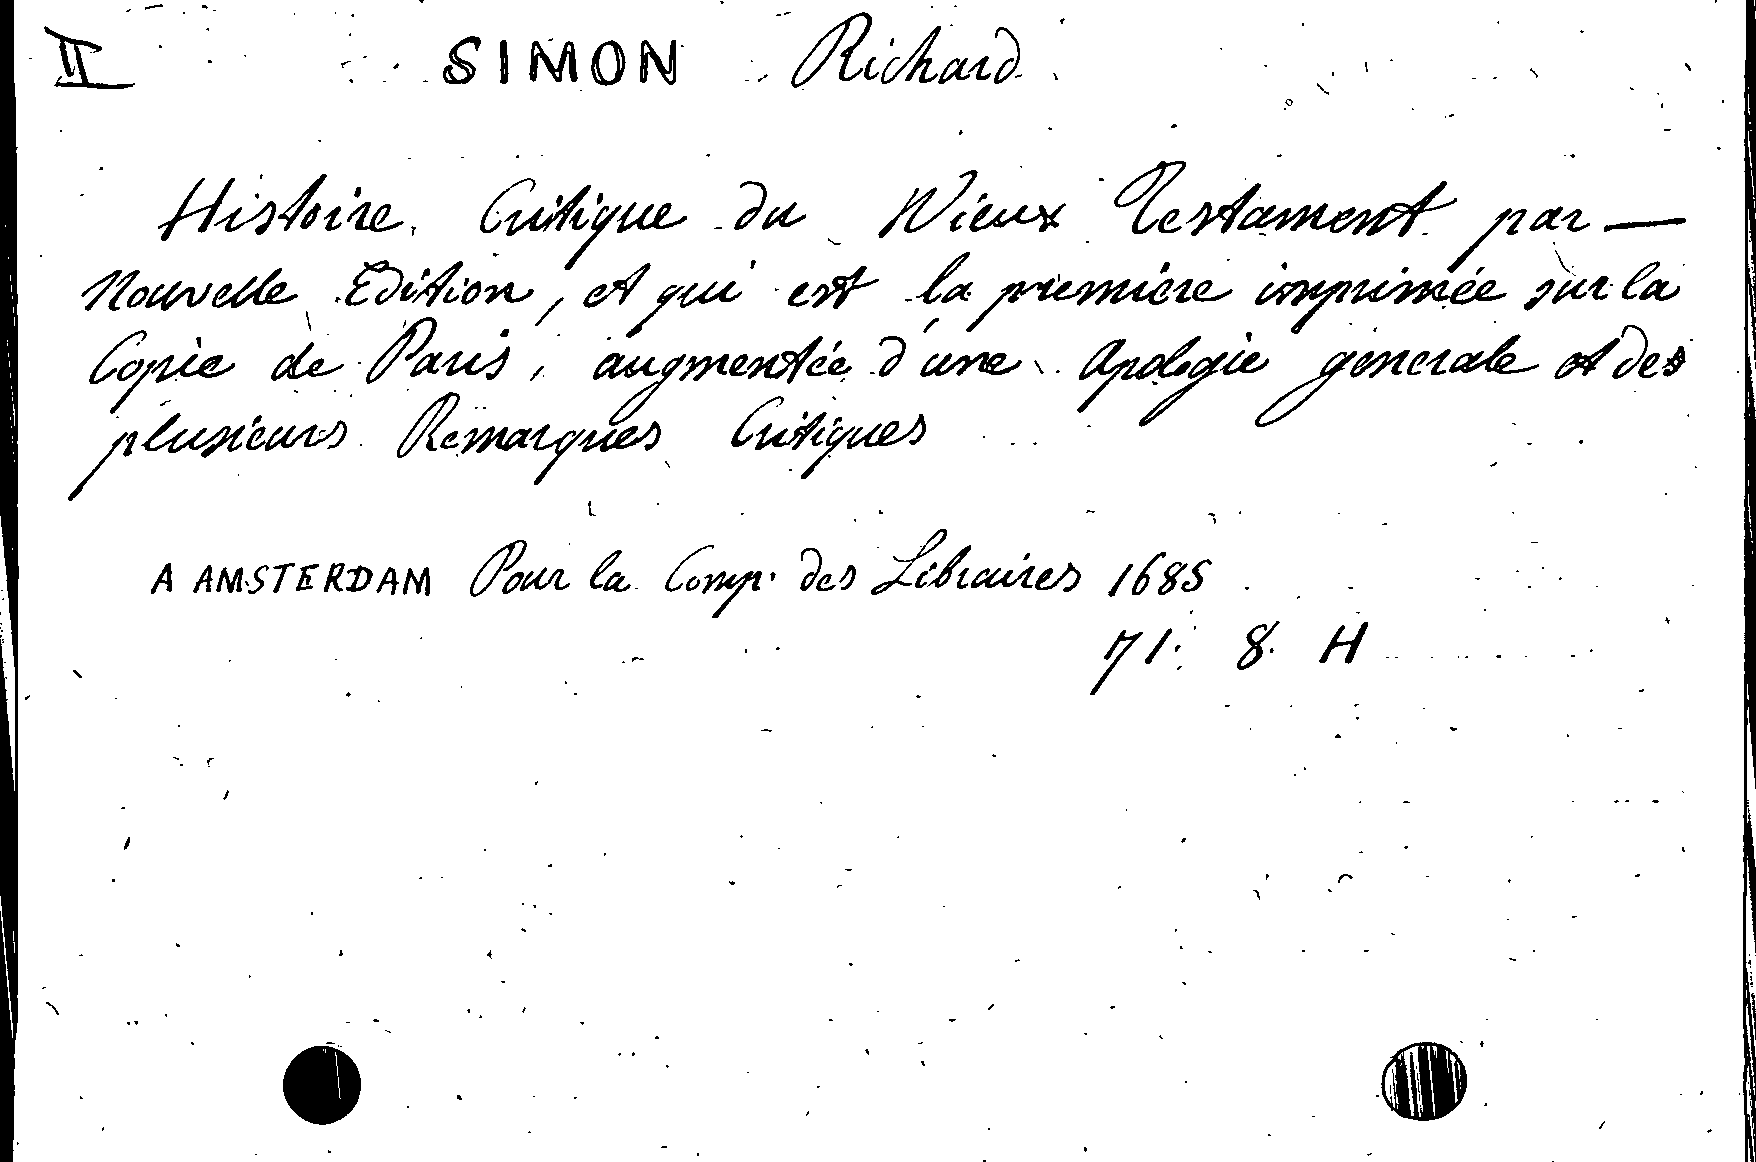 II SIMON Richard
Histoire Critique du Vieux Testament par —
Nouvelle Edition, et qui est la première imprimée sur la
Copie de Paris, augmentée d'une Apologie generale et des
plusieurs Remarques Critiques
A AMSTERDAM Pour la Comp. des Libraires 1685
71. 8. H